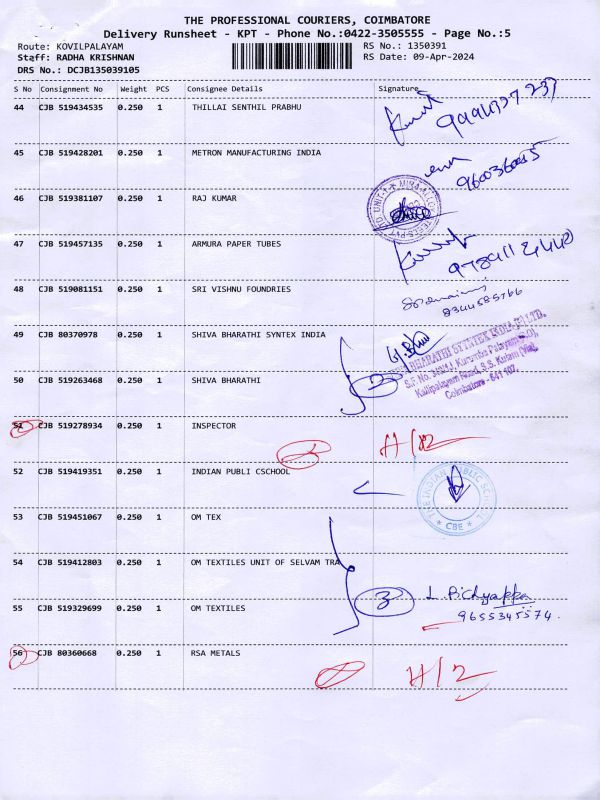 THE PROFESSIONAL COURIERS, COIMBATORE
Delivery Runsheet - KPT - Phone No.:0422-3505555 - Page No.:5
Route: KOVILPALAYAM RS No.: 1350391
Staff: RADHA KRISHNAN RS Date: 09-Apr-2024
DRS No.: DCJB135039105
S No Consignment No Weight PCS Consignee Details Signature
44 CJB 519434535 0.250 1 THILLAI SENTHIL PRABHU
45 CJB 519428201 0.250 1 METRON MANUFACTURING INDIA
46 CJB 519381107 0.250 1 RAJ KUMAR
47 CJB 519457135 0.250 1 ARMURA PAPER TUBES
48 CJB 519081151 0.250 1 SRI VISHNU FOUNDRIES
8344585766
49 CJB 80370978 0.250 1 SHIVA BHARATHI SYNTEX INDIA
BHARATHI SYNTEX INDIA (P) LTD.
S.F. No. 349/1, Kurumba Palayam
Kalipalayam Road, S.S. Kulam (Via),
Coimbatore - 641 107.
50 CJB 519263468 0.250 1 SHIVA BHARATHI 2
51 CJB 519278934 0.250 1 INSPECTOR
52 CJB 519419351 0.250 1 INDIAN PUBLI CSCHOOL
THE INDIAN PUBLIC SCHOOL
CBE
53 CJB 519451067 0.250 1 OM TEX
54 CJB 519412803 0.250 1 OM TEXTILES UNIT OF SELVAM TRA
3 L. Pichyappa
55 CJB 519329699 0.250 1 OM TEXTILES 9655345574
56 CJB 80360668 0.250 1 RSA METALS H/2